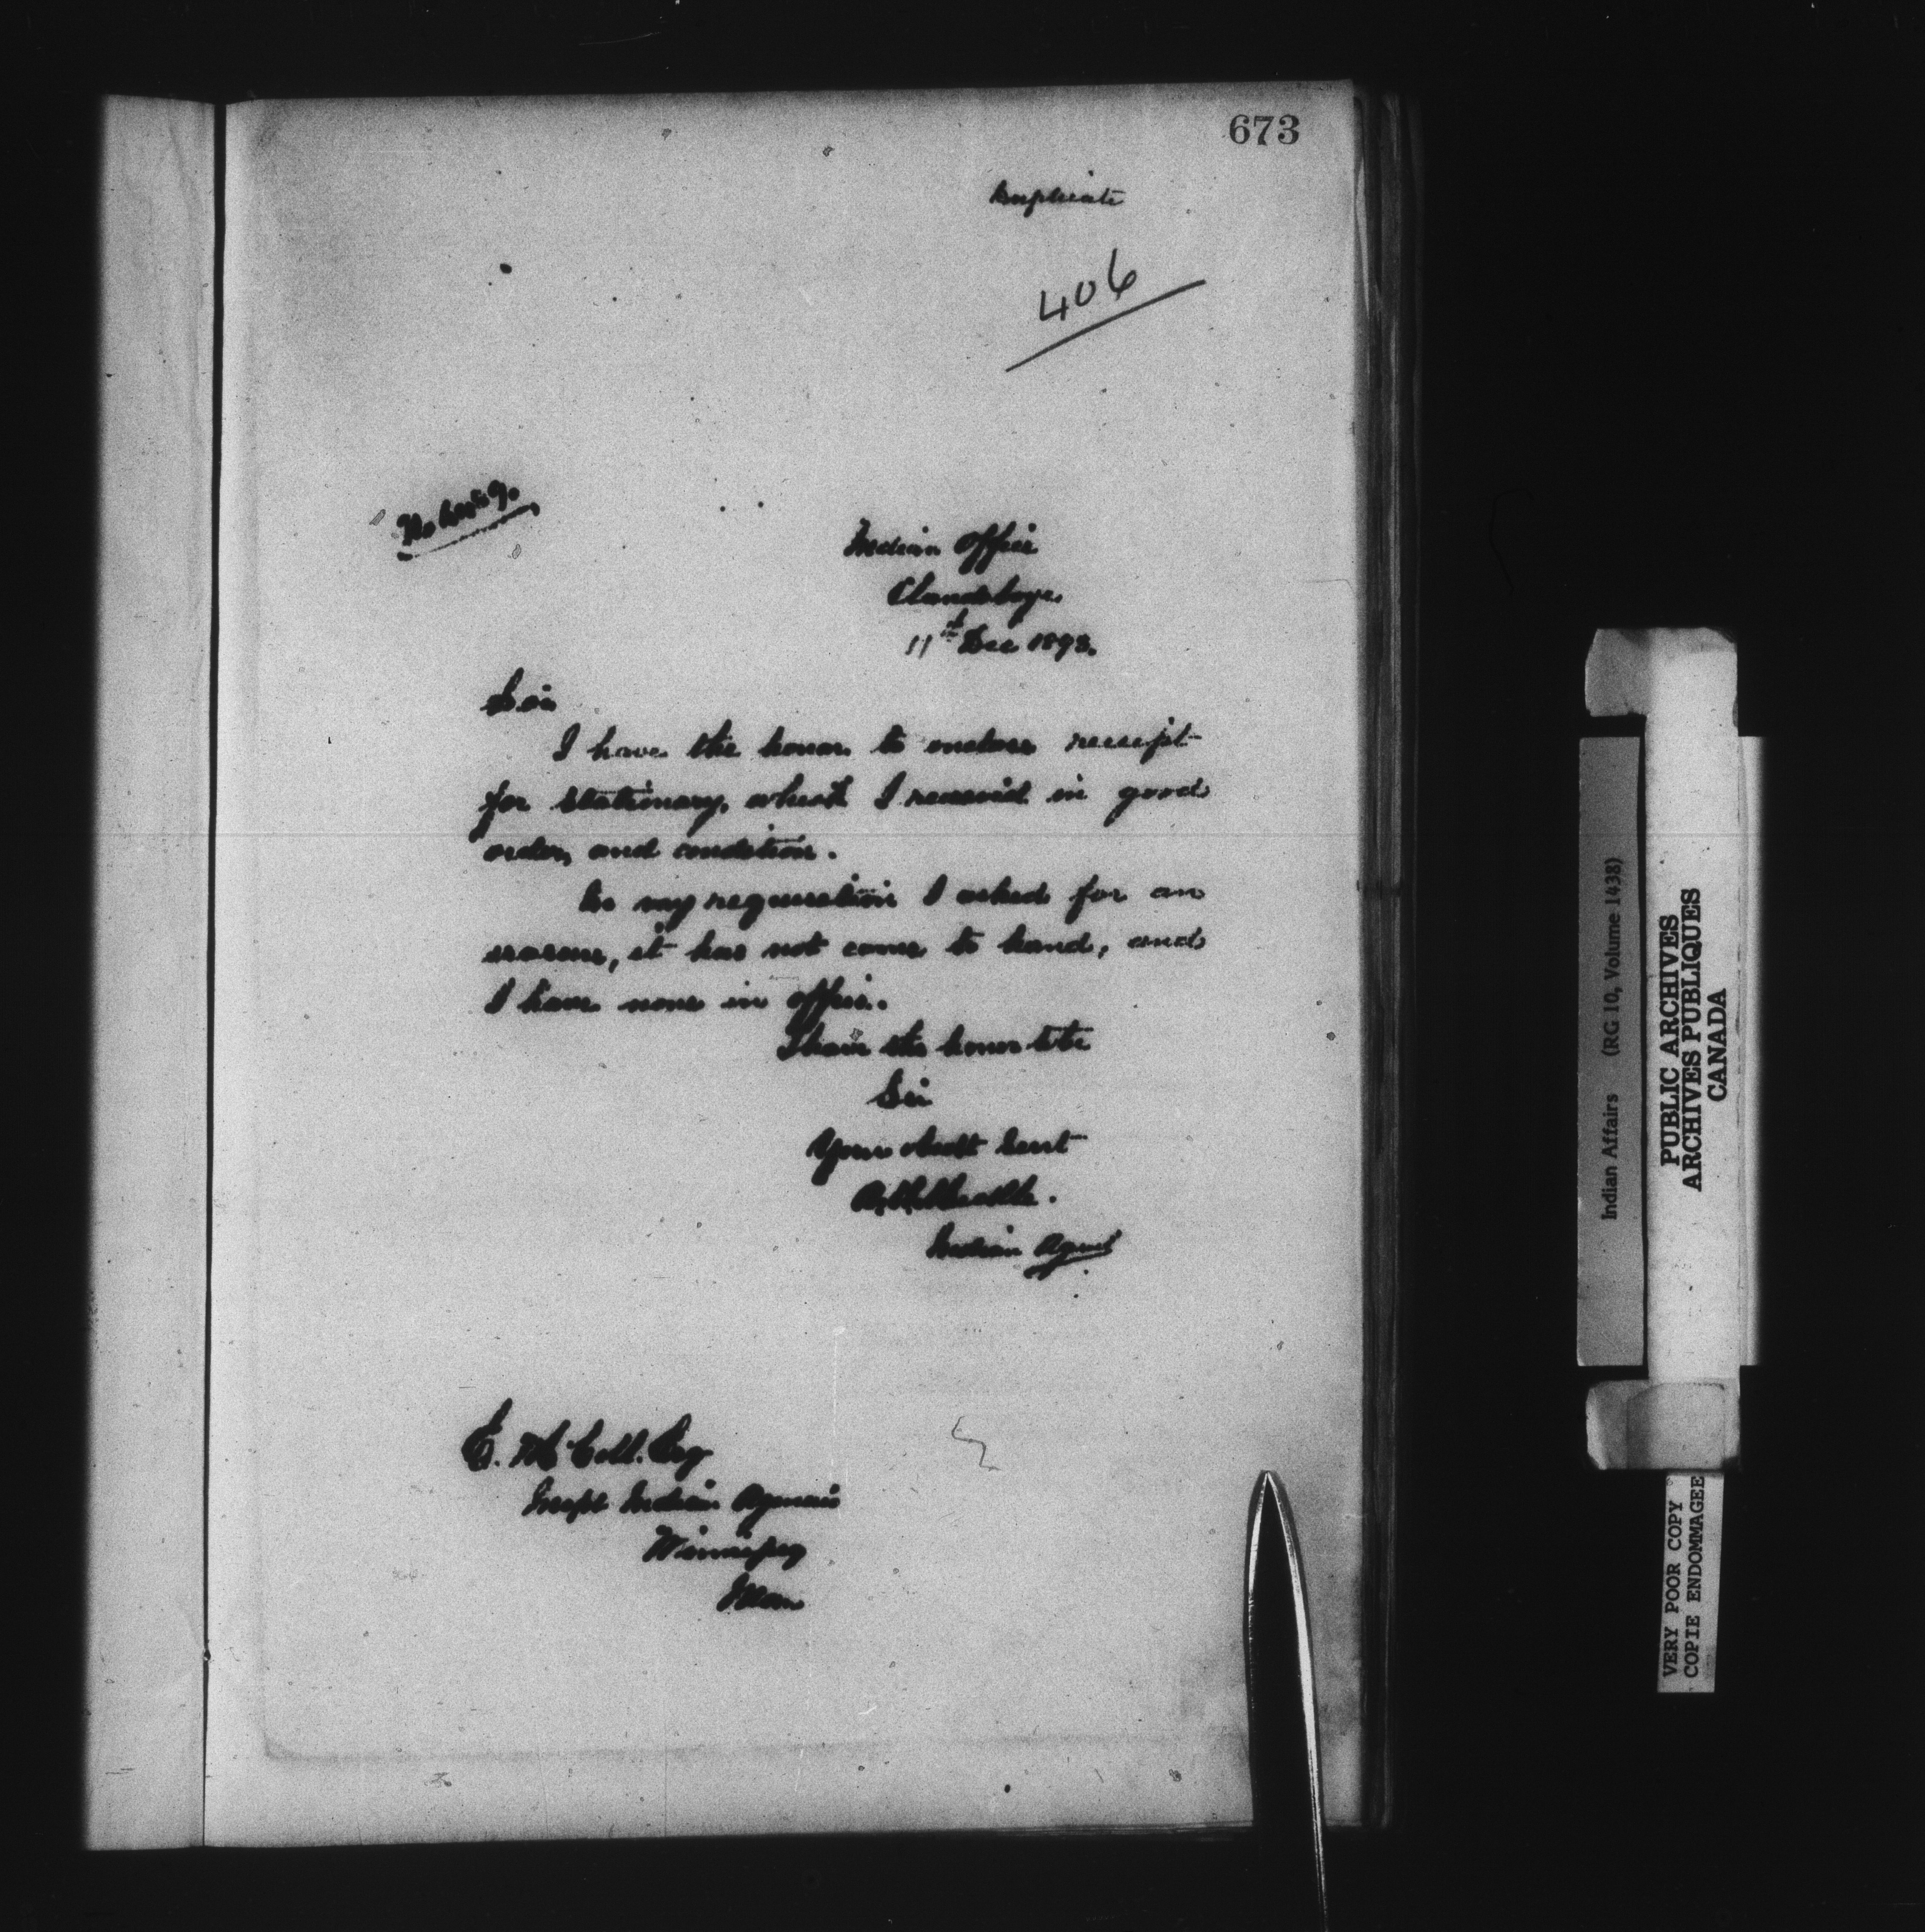 673
Duplicate
406
Indian Office
Clandeboye.
11th Dec 1893.
Sir
I have the honor to enclose receipt
for stationary, which I received in good
order, and condition.
In my requisition I asked for an
eraser, it has not come to hand, and
I have none in office.
I have the honor to be
Sir
Your obedt Servt
Indian Agent
E. McColl. Esq
Inspt Indian Agencies
Winnipeg
Man
Indian Affairs (RG 10, Volume 1438)
PUBLIC ARCHIVES
ARCHIVES PUBLIQUES
CANADA
VERY POOR COPY
COPIE ENDOMMAGEE